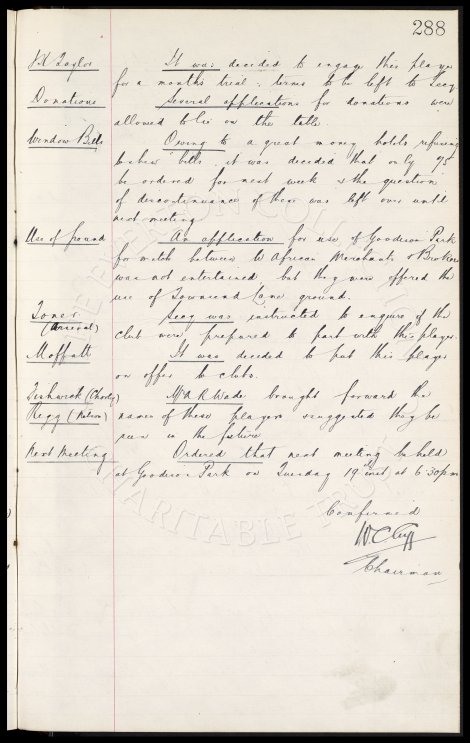 288
J H Taylor It was decided to engage this player
for a months trial. terms to be left to Secy
Donations Several applications for donations were
allowed to lie on the table.
Window Bills Owing to a great many hotels refusing
to shew bills. it was decided that only
be ordered for next week & the question
of discontinuance of these was left over until
next meeting
Use of ground An application for use of Goodison Park
for match between W African Merchants & Brokers
was not entertained but they were offered the
use of Townsend Lane ground.
Jones Secy was instructed to enquire if the
(Arsenal)
club were prepared to part with this player
Moffatt It was decided to put this player
on offer to clubs.
(Chorley) Mr A R Wade brought forward the
(Nelson) names of these players & suggested they be
seen in the future
Next Meeting Ordered that next meeting be held
at Goodison Park on Tuesday 19th inst at 6.30pm
Confirmed
W C Cuff
Chairman
CHARITABLE